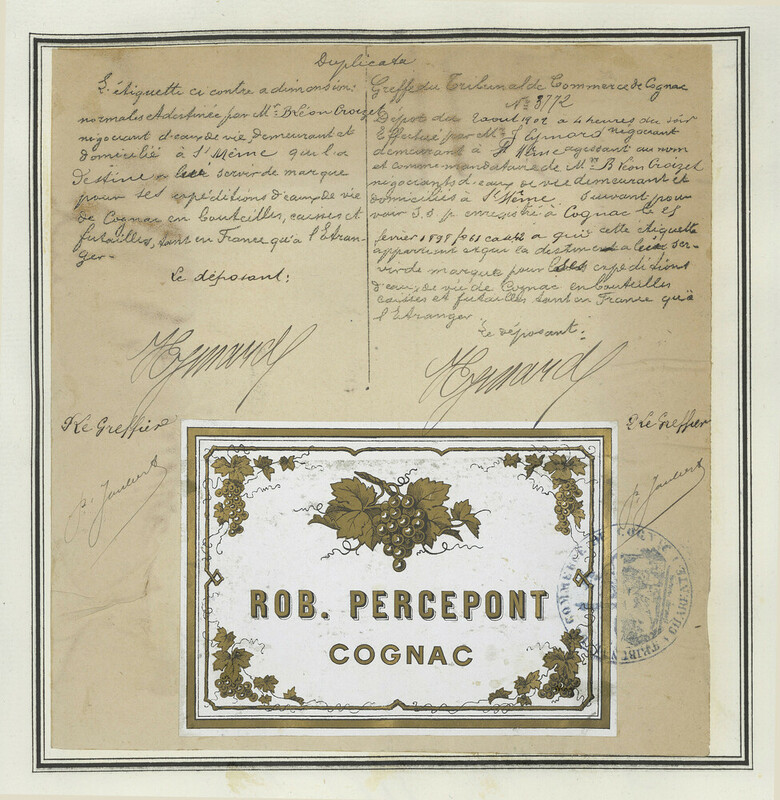 Duplicata
L'étiquette ci contre a dimension:
normales et destinée par Mr. B Léon Croizet
négociant d'eaux de vie, demeurant et
domicilié à St Même qui l'a
destine a servir de marque
pour ses expéditions d'eaux de vie
de Cognac en bouteilles, caisses et
futailles, tant en France qu'à l'Etran-
ger-
Le déposant:
Greffe du Tribunal de Commerce de Cognac
No 3772
Dépot du aout 1902 a 4 heures du soir
Effectué par Mr. Eymard négociant
demeurant à St Même agissant au nom
et comme mandataire de Mr B Léon Croizet
négociants d'eaux de vie demeurant et
domiciliés à St Même Suivant pou-
voir S.S.p. enregistré à Cognac le 25
fevrier 1898 fo 61 a qui cette étiquette
appartient et qui la destinent a ser-
vir de marque pour expéditions
d'eaux de vie de Cognac en bouteilles
caisses et futailles tant en France qu'à
l'Etranger
Le déposant:
Eymard
Eymard
Le Greffier
Le Greffier
ROB. PERCEPONT
COGNAC
TRIBUNAL COMMERCE DE COGNAC (CHARENTE)